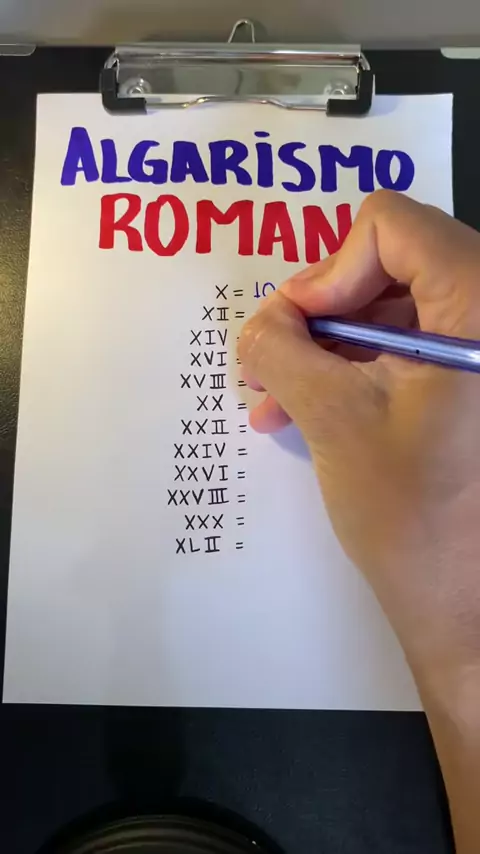 ALGARISMO
ROMAN
X = 10
XII =
XIV =
XVI =
XVIII =
XX =
XXII =
XXIV =
XXVI =
XXVIII =
XXX =
XLII =